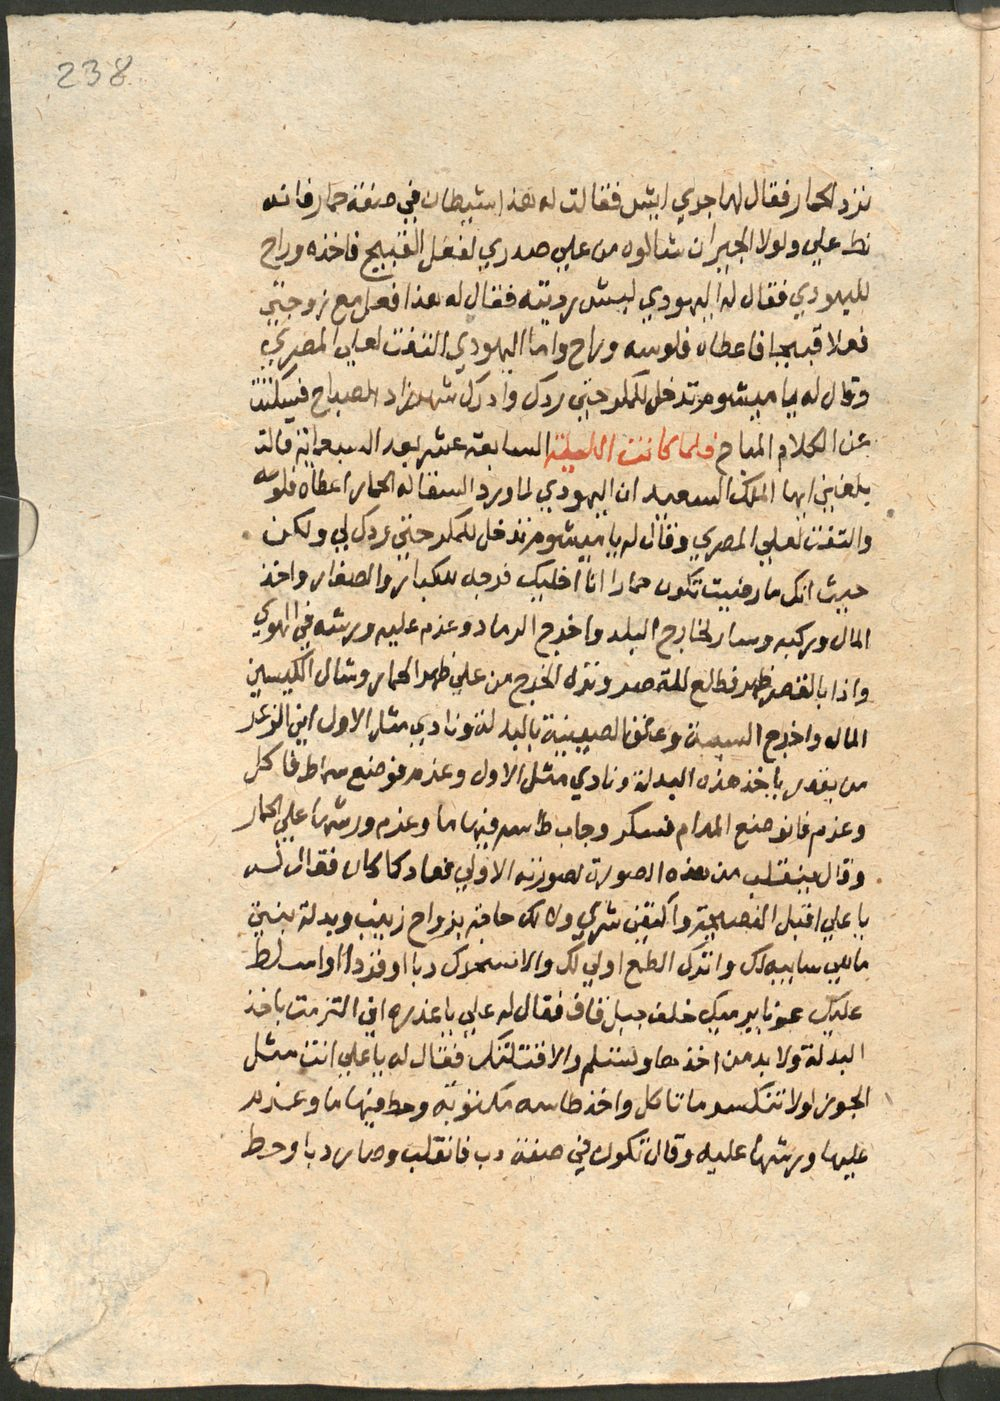 238
نزد الحمار فقال لها جري ايش فقالت له هذا شيطان في صفة حمار فانه
نط علي ولولا الجيران شالوه من علي صدري لفعل القبيح فاخذه وراح
لليهودي فقال له اليهودي ليش رديته فقال له هذا فعل مع زوجتي
فعلا قبيحا فاعطاه فلوسه وراح واما اليهودي التفت لعلي المصري
وقال له يا ميشوم تدخل للمكر حتي ردك وادرك شهرزاد الصباح فسكتت
عن الكلام المباح فلما كانت الليلة السابعة عشر بعد السبعماية قالت
بلغني ايها الملك السعيد ان اليهودي لما ورد السقا له الحمار اعطاه فلوسه
والتفت لعلي المصري وقال له يا ميشوم تدخل للمكر حتي ردك لي ولكن
حيث انك ما رضيت تكون حمارا انا اخليك فرجه للكبار والصغار واخذ
المال وركبه وسار لخارج البلد واخرج الرماد وعزم عليه ورشه في الهوي
واذا بالقصر ظهر فطلع للقصر ونزل الخرج من علي ظهر الحمار وشال الكيسين
المال واخرج السيبة وعلق الصينية بالبدلة ونادي مثل الاول اين الزعر
من يقدر ياخذ هذه البدلة ونادي مثل الاول وعزم فوضع سماط فاكل
وعزم فانوضع المدام فسكر وجاب طاسه فيها ما وعزم ورشها علي الحمار
وقال ينقلب من هذه الصورة لصورته الاولي فعاد كما كان فقال له
يا علي اقبل النصيحة واكتفي شري ولا لك حاجة بزواج زينب وبدلة بنتي
ما هي سايبه لك واترك الطمع اولي لك والا نسحرك دبا او قردا او اسلط
عليك عونا يرميك خلف جبل قاف فقال له علي يا عذره اني التزمت باخذ
البدلة ولا بد من اخذها وتسلم والا قتلتك فقال له يا علي انت مثل
الجوز لولا تتكسر ما تتاكل واخذ طاسه مكتوبه وحط فيها ما وعزم
عليها ورشها عليه وقال تكون في صفة دب فانقلب وصار دبا وحط